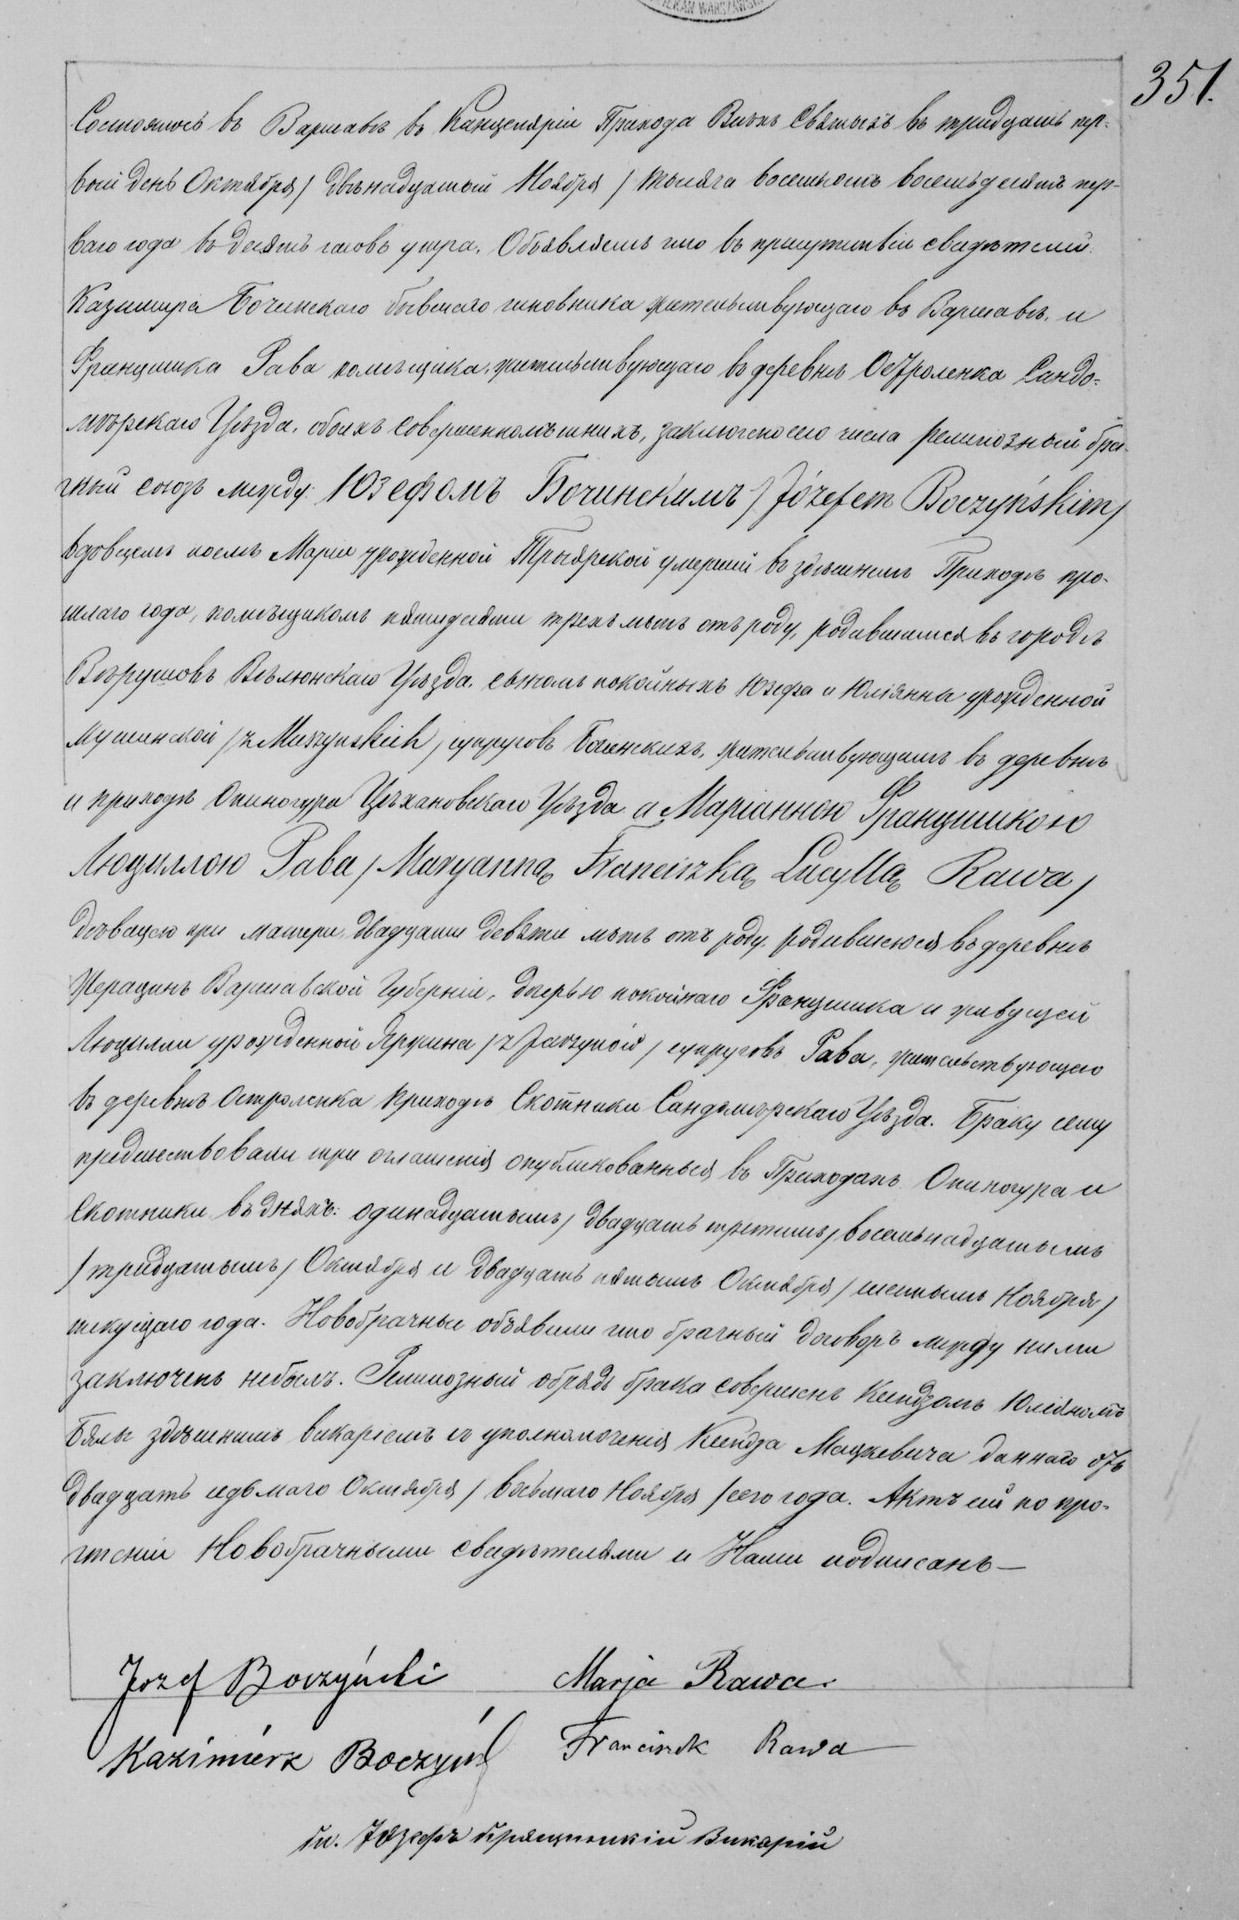 351.
Состоялось въ Варшавѣ въ Канцеляріи Прихода Всѣхъ Святыхъ въ тридцать пер-
вый день Октября / двѣнадцатый Ноября / тысяча восемьсотъ восемьдесятъ пер-
ваго года въ десять часовъ утра. Объявляемъ что въ присутствіи свидѣтелей:
Казимира Бочинскаго бывшаго чиновника жительствующаго въ Варшавѣ, и
Францишка Рава помѣщика, жительствующаго въ деревнѣ Остроленка Сандо-
мѣрскаго Уѣзда, обоихъ совершеннолѣтнихъ, заключено сего числа религіозный бра-
чный союзъ между: Юзефомъ Бочинскимъ / Józefem Boczyńskim /
вдовцемъ послѣ Маріи урожденной Трыярской умершей въ здѣшнемъ Приходѣ про-
шлаго года, помѣщикомъ пятидесяти трехъ лѣтъ отъ роду, родившимся въ городѣ
Вѣрушовѣ Вѣлюнскаго Уѣзда, сыномъ покойныхъ Юзефа и Юліянны урожденной
Мушинской / z Muszyńskich / супруговъ Бочинскихъ, жительствующимъ въ деревнѣ
и приходѣ Опиногура Цѣхановскаго Уѣзда а Маріанною Францишкою
Люциллою Рава / Maryanną Franciszką Lucyllą Rawa /
дѣвицею при матери, двадцати девяти лѣтъ отъ роду, родившеюся въ деревнѣ
Варшавской Губерніи, дочерью покойнаго Францишка и живущей
Люциллы урожденной супруговъ Рава, жительствующею
въ деревнѣ Остроленка приходѣ Скотники Сандомѣрскаго Уѣзда. Браку сему
предшествовали три оглашенія опубликованныя въ Приходахъ Опиногура и
Скотники въ дняхъ: одинадцатымъ / двадцать третьимъ / восемьнадцатымъ
/ тридцатымъ / Октября и двадцать пятымъ Октября / шестымъ Ноября /
текущаго года. Новобрачные объявили что брачный договоръ между ними
заключенъ небылъ. Религіозный обрядъ брака совершенъ Ксендзомъ Юліяномъ
Бялы здѣшнимъ викаріемъ съ уполномоченія Ксендза Мацкевича даннаго отъ
двадцать седьмаго Октября / восьмаго Ноября / сего года. Актъ сей по про-
чтеніи Новобрачными свидѣтелями и Нами подписанъ —
Józef Boczyński Marja Rawa.
Kazimiérz Boczyńs Franciszek Rawa
Кс. Юзефъ Викарій